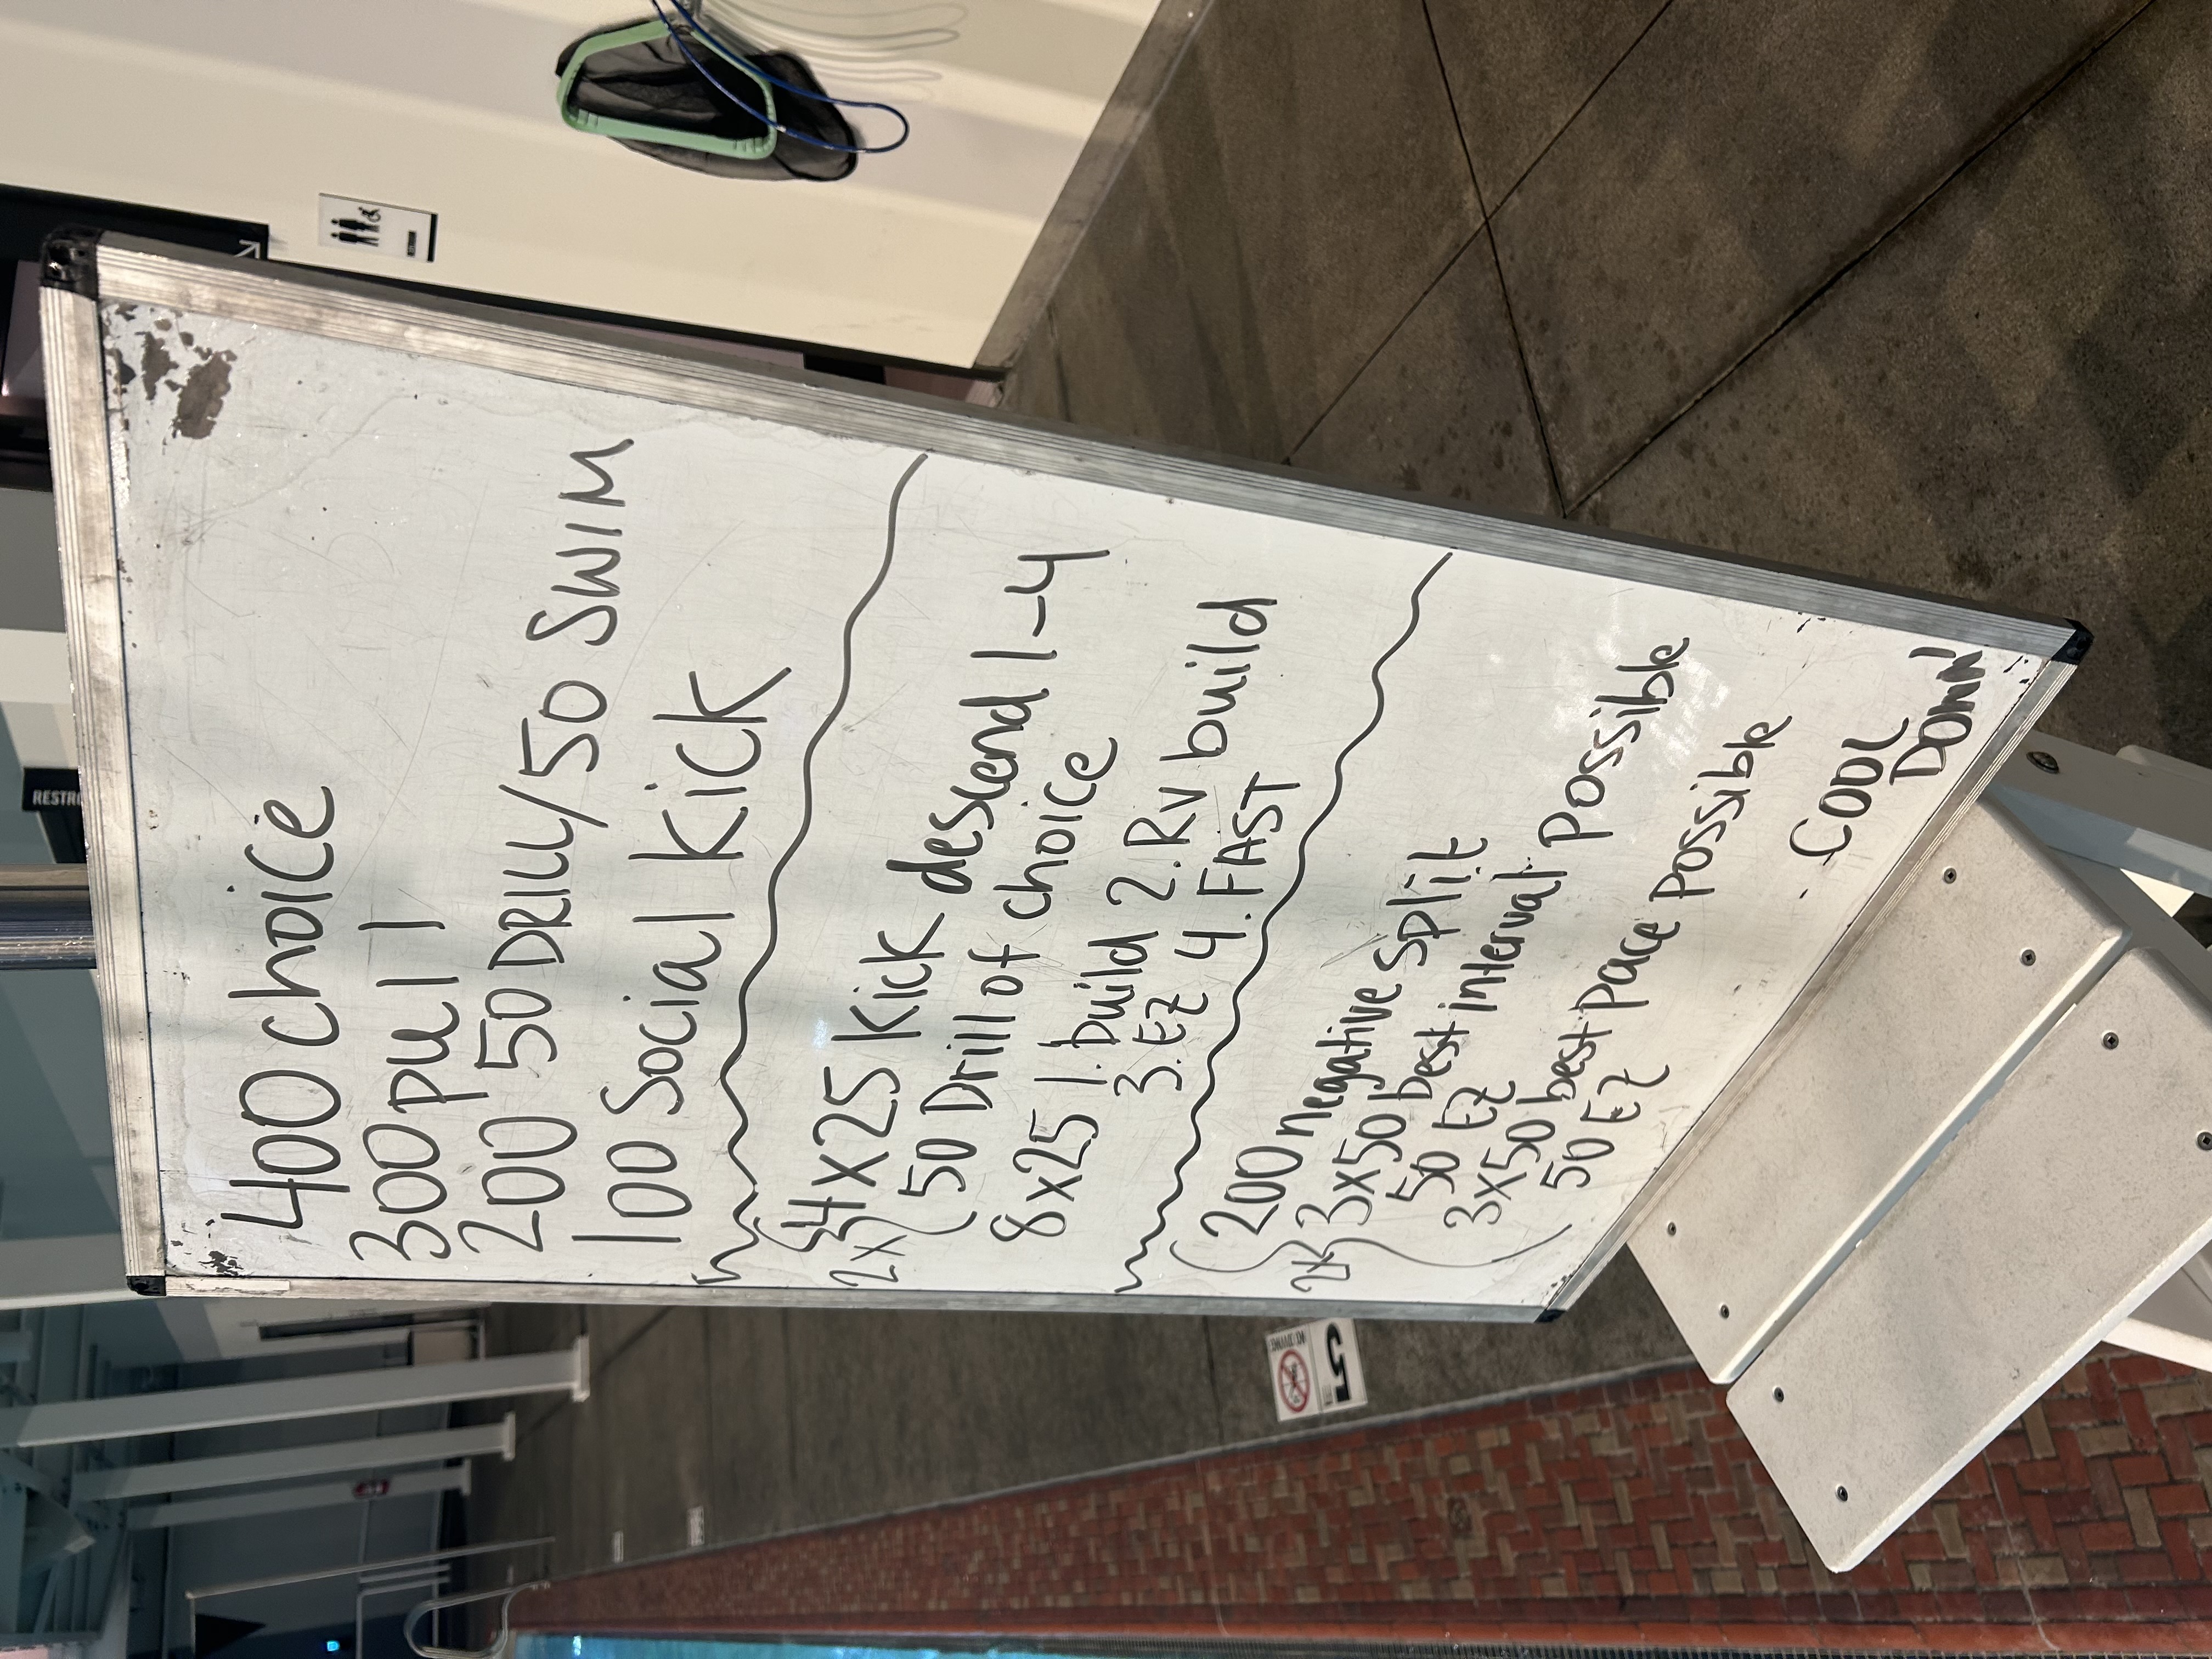 400 choice
300 pull
200 50 DRILL/50 SWIM
100 Social Kick
2x 4x25 Kick descend 1-4
50 Drill of choice
8x25 1. build 2. RV build
3. EZ 4. FAST
200 negative split
2x 3x50 best interval possible
50 EZ
3x50 best pace possible
50 EZ
COOL
DOWN
RESTR
5